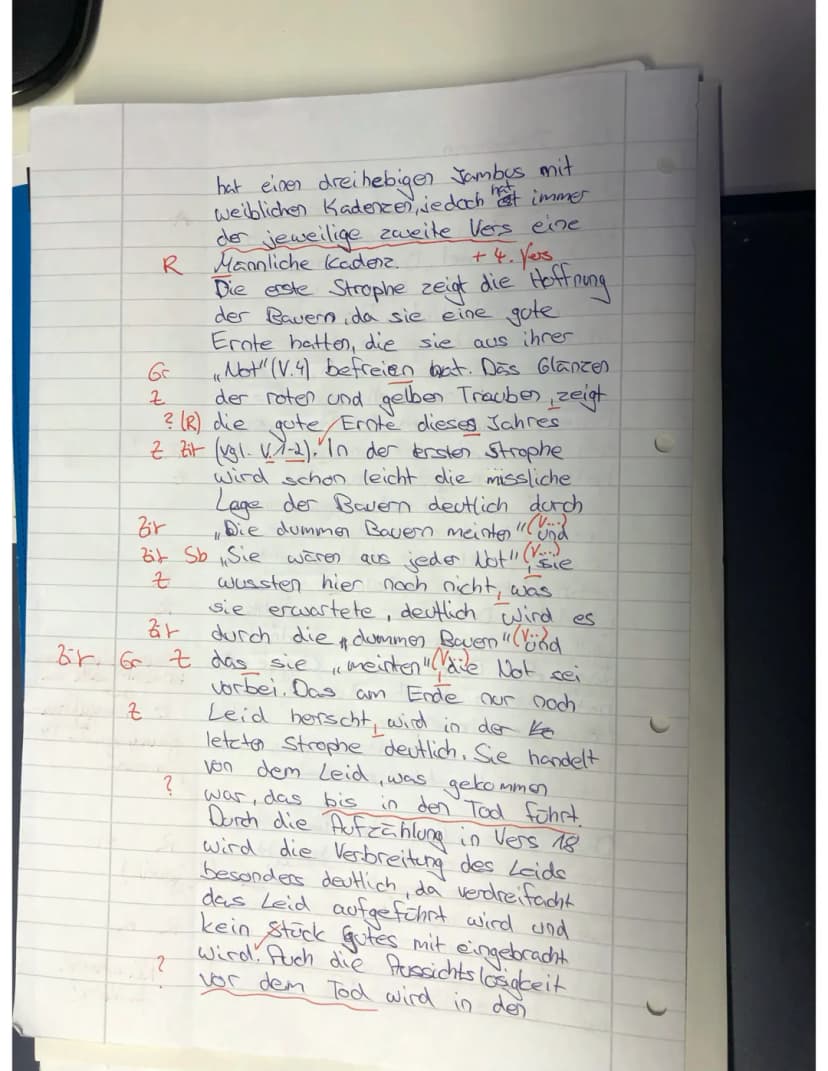 hat einen dreihebigen Jambus mit
weiblichen Kadenzen, jedoch hat immer
der jeweilige zweite Vers eine
+ 4. Vers
R Männliche Kadenz.
Die erste Strophe zeigt die Hoffnung
der Bauern, da sie eine gute
Ernte hatten, die sie aus ihrer
Gr „Not" (V.4) befreien hat. Das Glänzen
Z der roten und gelben Trauben, zeigt
? (R) die gute Ernte dieses Jahres
Z Zit (vgl. V.1-2). In der ersten Strophe
wird schon leicht die missliche
Lage der Bauern deutlich durch
Zit „Die dummen Bauern meinten" (V...) und
Zit Sb „Sie wären aus jeder Not" (V...), sie
Z wussten hier noch nicht, was
sie erwartete, deutlich wird es
Zit durch die „dummen Bauern" (V..) und
Zit. Gr Z das sie „meinten" (V..) die Not sei
vorbei. Das am Ende nur noch
Z Leid herscht, wird in der
letzten Strophe deutlich. Sie handelt
von dem Leid, was gekommen
? war, das bis in den Tod führt.
Durch die Aufzählung in Vers 18
wird die Verbreitung des Leids
besonders deutlich, da verdreifacht
das Leid aufgeführt wird und
kein Stück gutes mit eingebracht
wird. Auch die Aussichtslosigkeit
? vor dem Tod wird in den